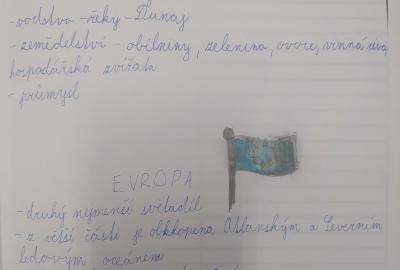 -vodstvo -řeky -Dunaj
-zemědelství - obilniny, zelenina, ovoce, vinná réva,
hospodářská zvířata
-průmysl
EVROPA
-druhý nejmenší světadíl
-z větší části je obklopena Atlanským a Severním
ledovým oceánem